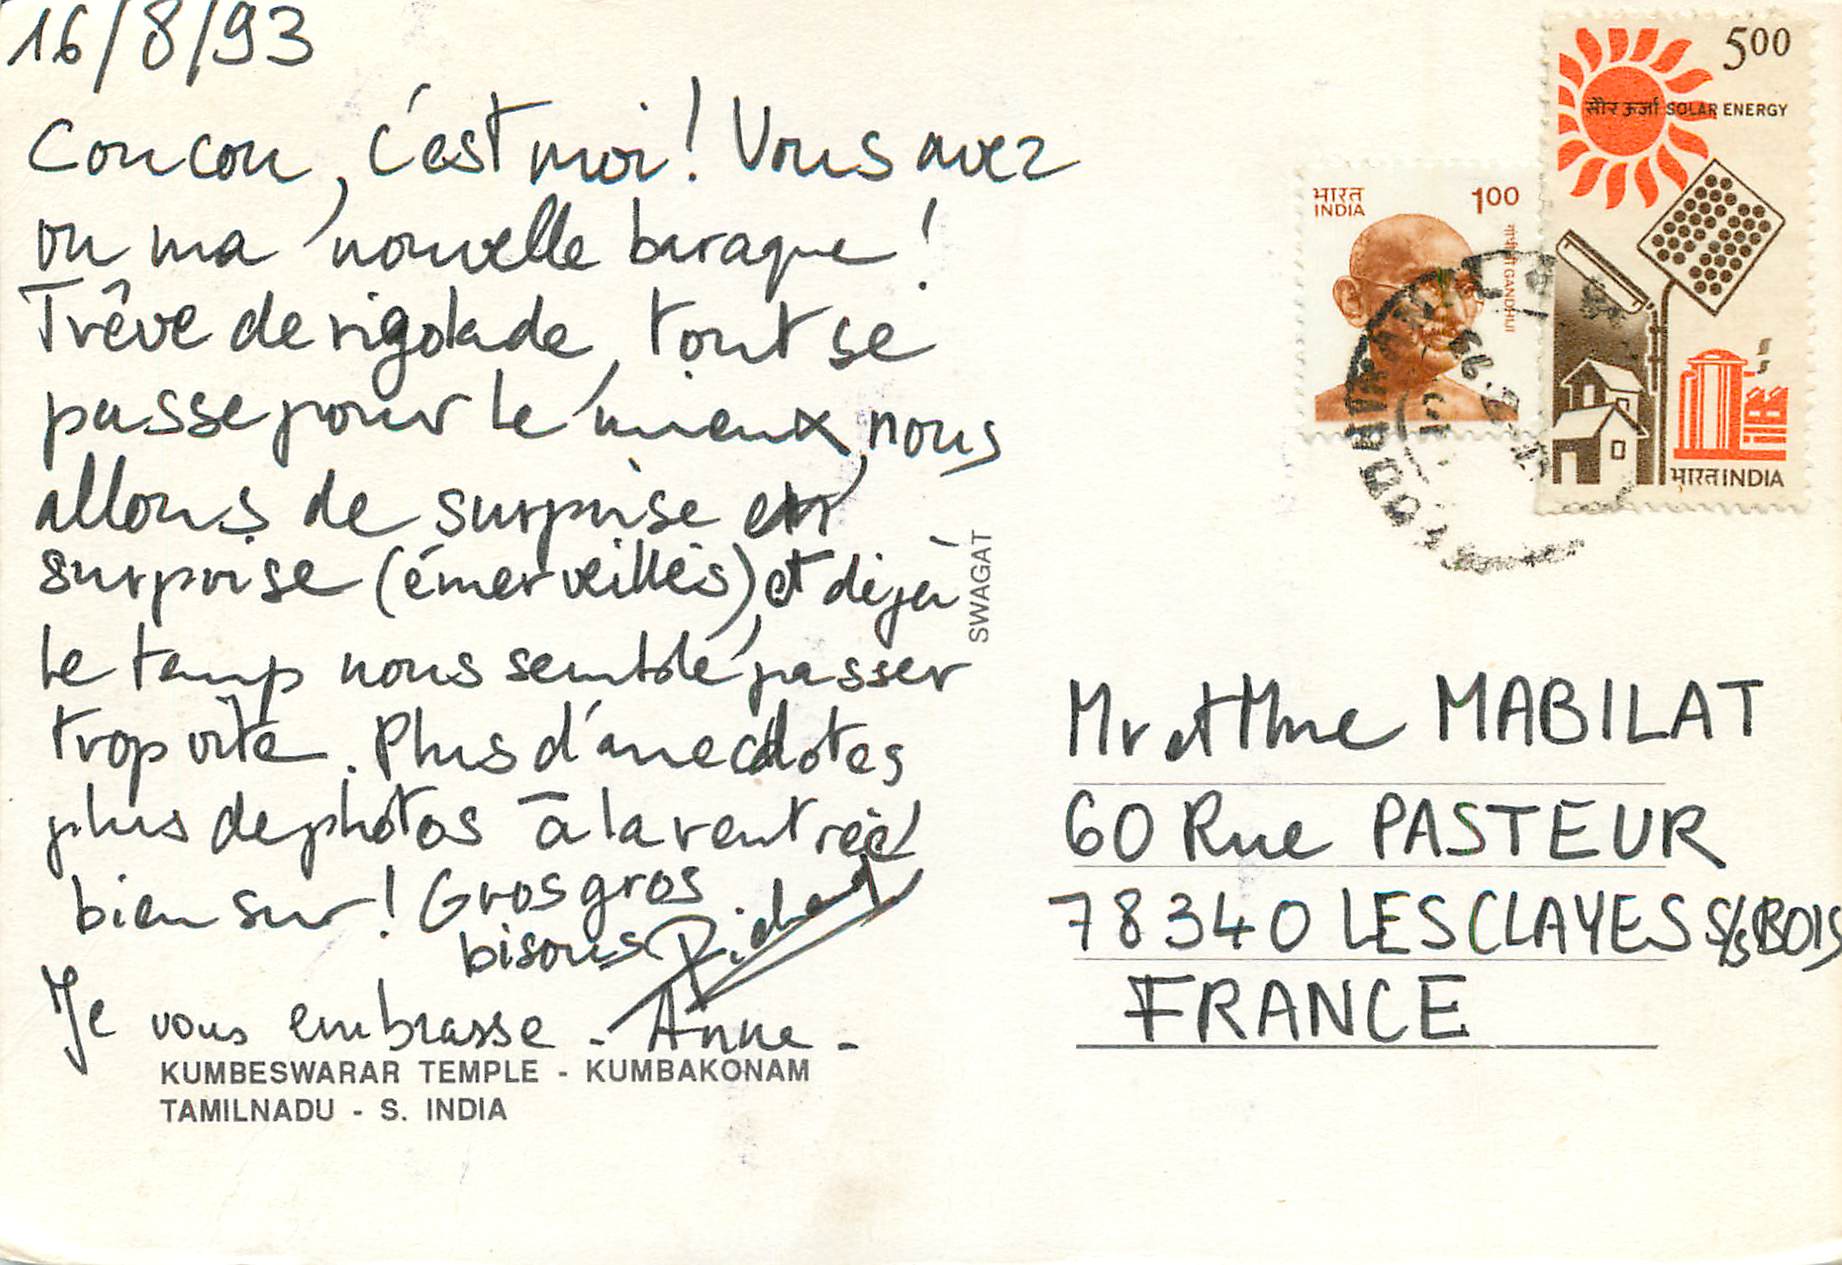 16/8/93
Coucou, c'est moi ! Vous avez
vu ma nouvelle baraque !
Trêve de rigolade, tout se
passe pour le mieux, nous
allons de surprise en
surprise (émerveillés) et déjà
le temp nous semble passer
trop vite. Plus d'anecdotes
plus de photos à la rentrée
bien sur ! Gros gros
bisous Richard
Je vous embrasse - Anne -
KUMBESWARAR TEMPLE - KUMBAKONAM
TAMILNADU - S. INDIA
SWAGAT
भारत
INDIA
100
गांधीजी GANDHIJI
500
सौर ऊर्जा SOLAR ENERGY
भारत INDIA
Mr et Mme MABILAT
60 Rue PASTEUR
78340 LES CLAYES S/S BOIS
FRANCE